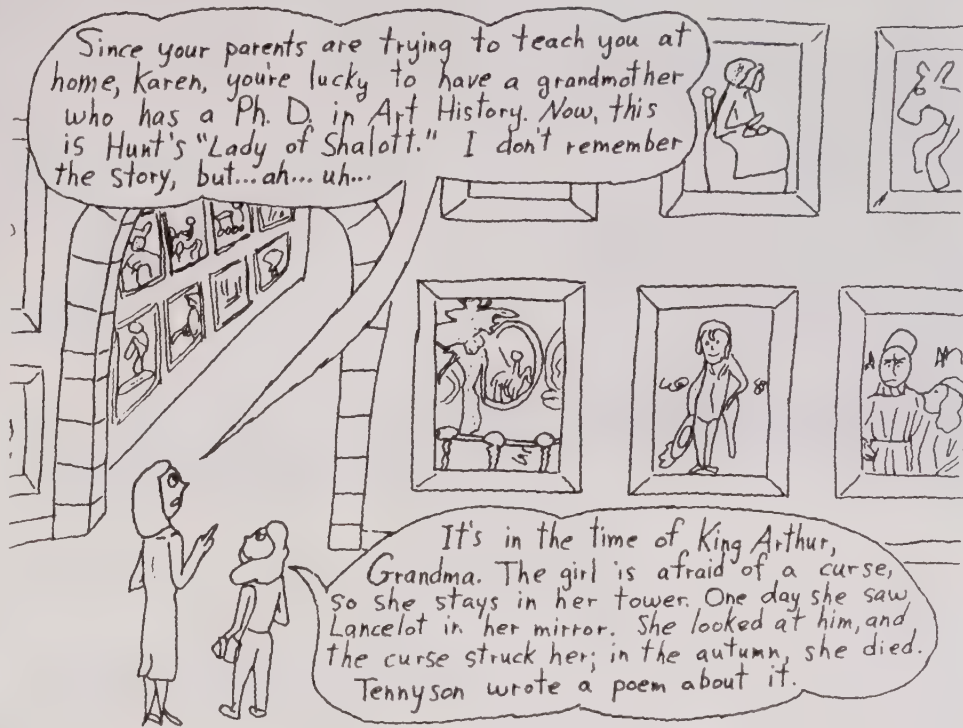 Since your parents are trying to teach you at
home, Karen, you're lucky to have a grandmother
who has a Ph. D. in Art History. Now, this
is Hunt's "Lady of Shalott." I don't remember
the story, but...ah... uh...
It's in the time of King Arthur,
Grandma. The girl is afraid of a curse,
so she stays in her tower. One day she saw
Lancelot in her mirror. She looked at him, and
the curse struck her; in the autumn, she died.
Tennyson wrote a poem about it.